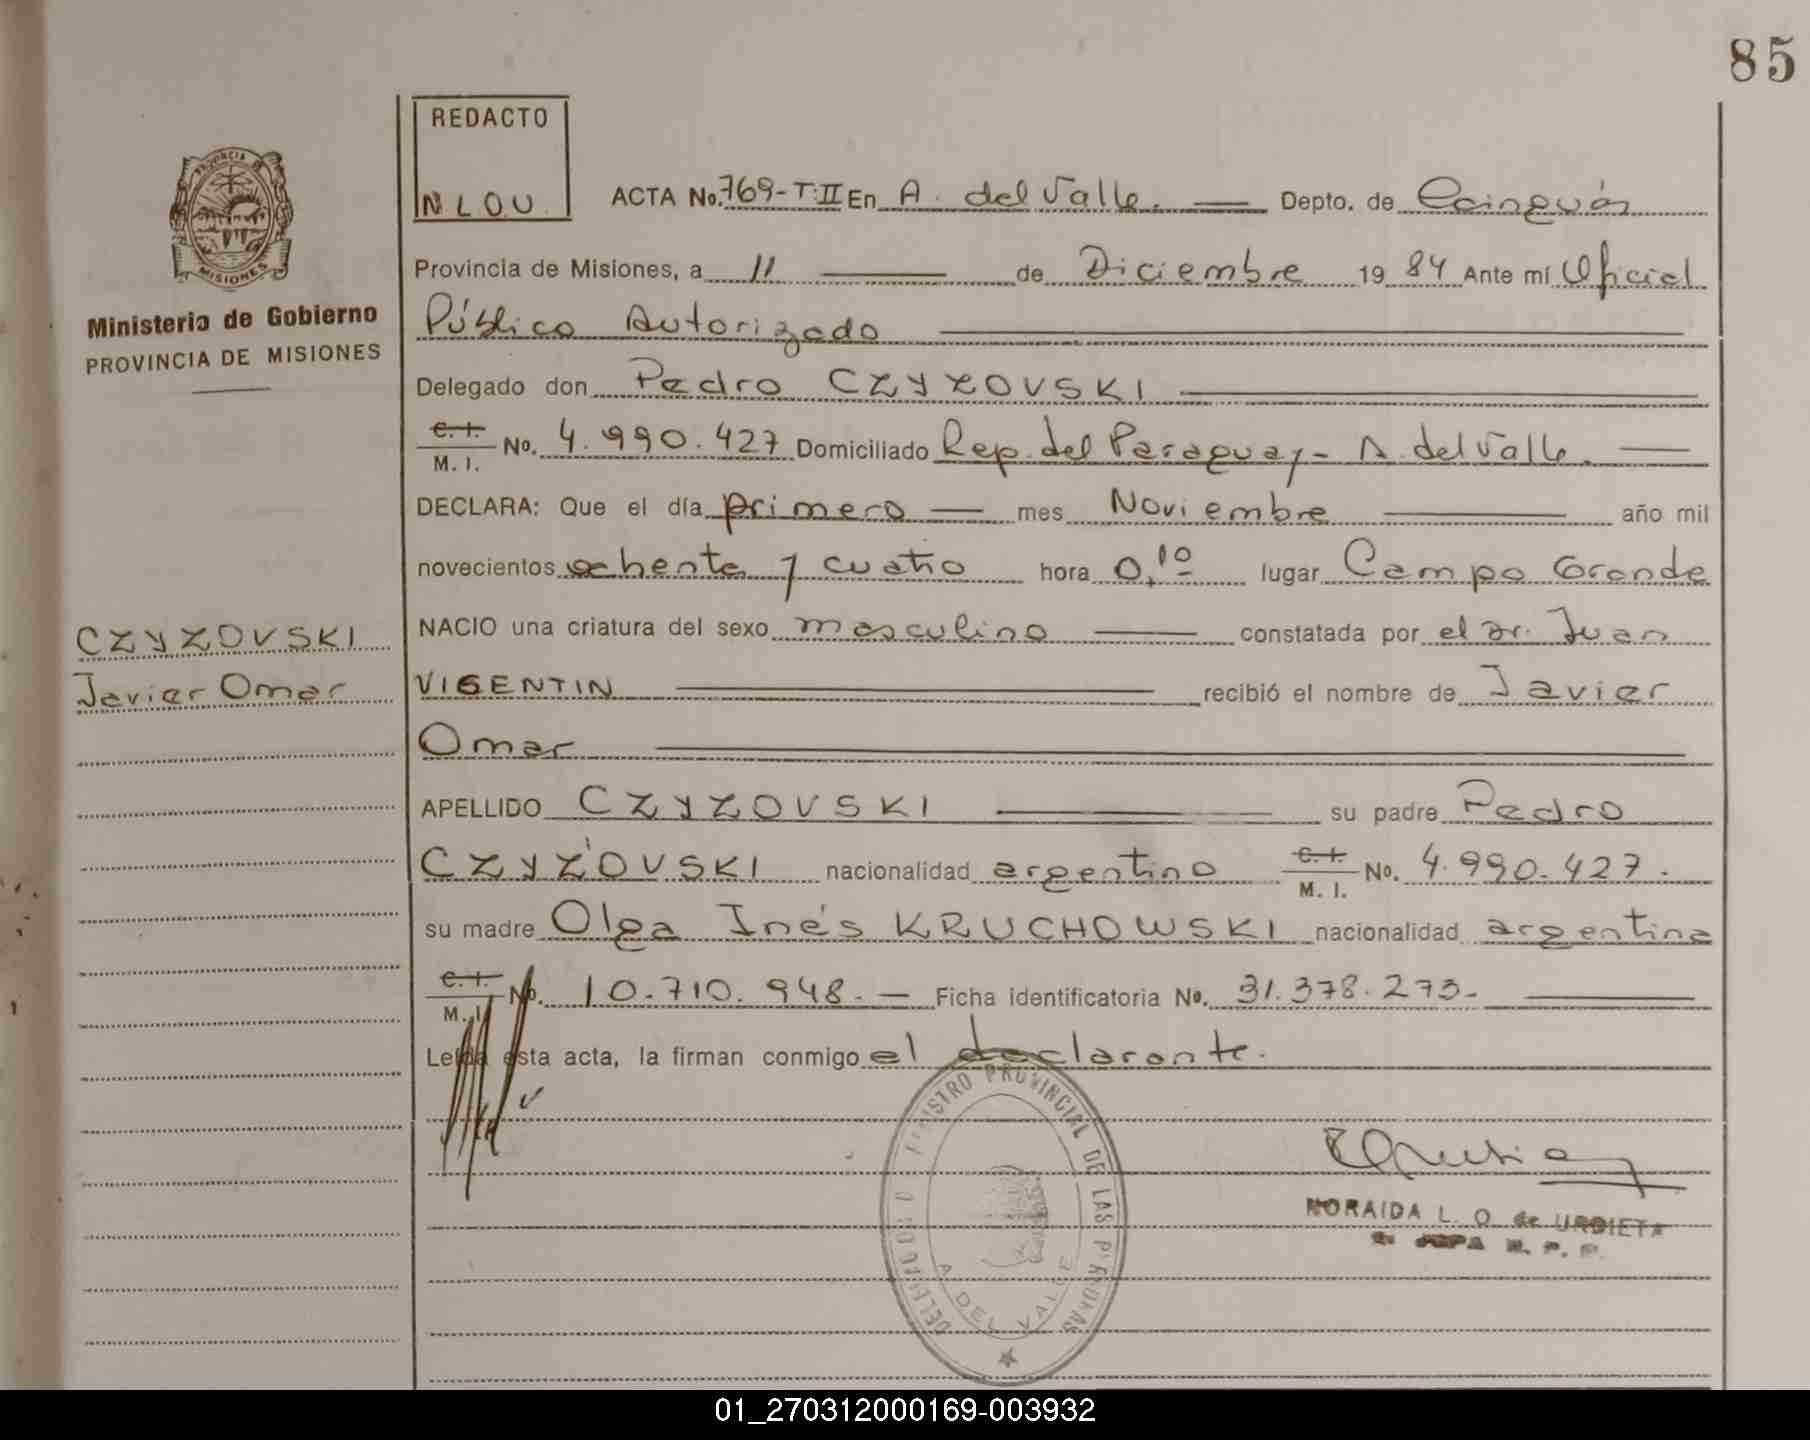 85
REDACTO
N L O U
ACTA No. 769-T:II En A. del Valle. Depto. de Cainguás
PROVINCIA DE
MISIONES
Provincia de Misiones, a 11 de Diciembre 19 84 Ante mí Oficial
Ministerio de Gobierno
PROVINCIA DE MISIONES
Público Autorizado
Delegado don Pedro CZYZOVSKI
C. I. M. I. No. 4.990.427 Domiciliado Rep. del Paraguay - A. del Valle.
DECLARA: Que el día primero mes Noviembre año mil
novecientos ochenta y cuatro hora 0,10 lugar Campo Grande
NACIO una criatura del sexo masculino constatada por el Dr. Juan
CZYZOVSKI
Javier Omar
VISENTIN recibió el nombre de Javier
Omar
APELLIDO CZYZOVSKI su padre Pedro
CZYZOVSKI nacionalidad argentino C. I. M. I. No. 4.990.427.
su madre Olga Inés KRUCHOWSKI nacionalidad argentina
C. I. M. I. No. 10.710.948. Ficha identificatoria No. 31.378.273-
Leída esta acta, la firman conmigo el declarante.
REGISTRO PROVINCIAL DE LAS PERSONAS
A. DEL VALLE
NORAIDA L. O. de URDIETA
JEFA R. P. P.
01_270312000169-003932